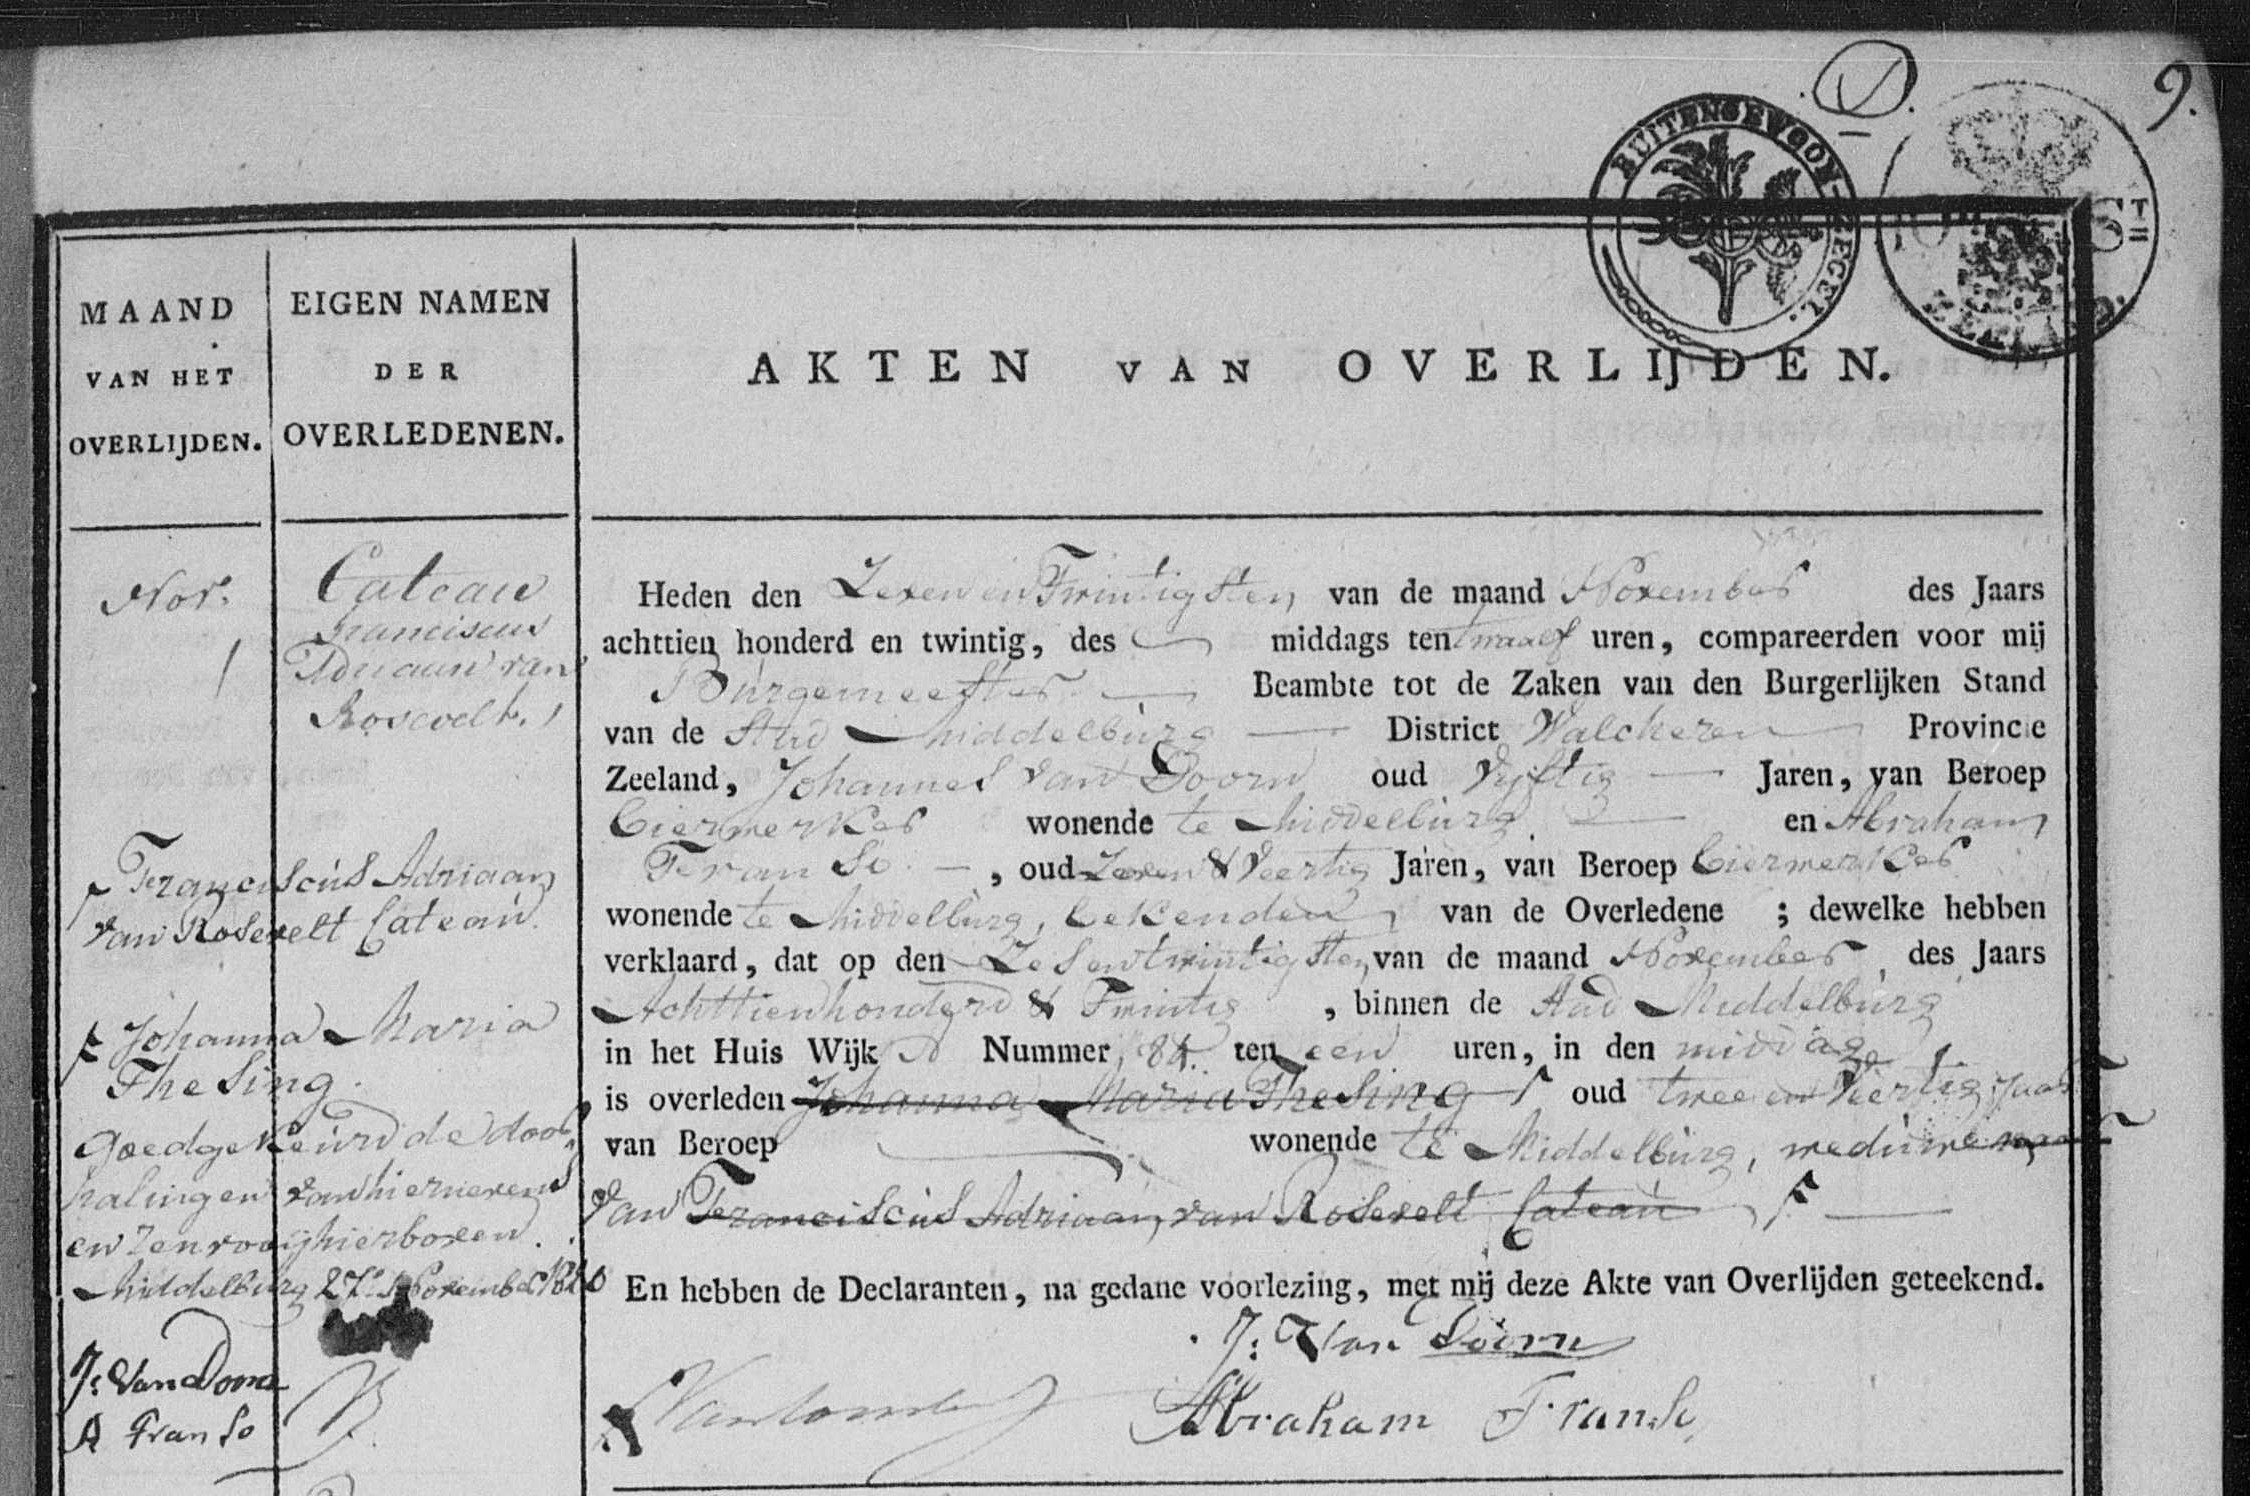 D.
9.
BUITENGEWOON ZEGEL.
ST
ZEELAND.
MAAND
VAN HET
OVERLIJDEN.
EIGEN NAMEN
DER
OVERLEDENEN.
AKTEN VAN OVERLIJDEN.
Nov.
Cateau
Franciscus
Adriaan van
Rosevelt.
Franciscus Adriaan
van Rosevelt Cateau.
Johanna Maria
Thesing.
goedgekeurd de door
halingen van hiernevens
en hierboven.
Middelburg 27e November 1820
J: Van Doorn
A Franso
Heden den Zeven en Twintigsten van de maand November des Jaars
achttien honderd en twintig, des middags ten twaalf uren, compareerden voor mij
Burgemeester Beambte tot de Zaken van den Burgerlijken Stand
van de Stad Middelburg District Walcheren Provincie
Zeeland, Johannes van Doorn oud Vyftig Jaren, van Beroep
wonende te Middelburg en Abraham
Franso, oud Zeven & Veertig Jaren, van Beroep
wonende te Middelburg, bekenden van de Overledene ; dewelke hebben
verklaard, dat op den Zesentwintigsten van de maand November des Jaars
Achttienhonderd & Twintig, binnen de Stad Middelburg
in het Huis Wijk D Nummer 84 ten een uren, in den middag
is overleden Johanna Maria Thesing oud twee en Veertig Jaar
van Beroep wonende te Middelburg,
van Franciscus Adriaan van Rosevelt Cateau
En hebben de Declaranten, na gedane voorlezing, met mij deze Akte van Overlijden geteekend.
J: Van Doorn
Abraham Franso